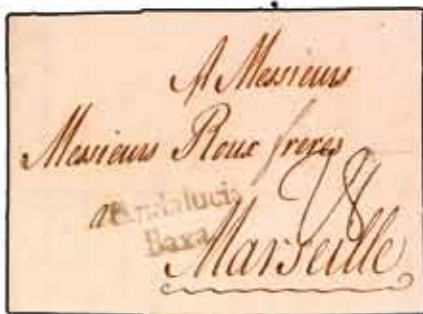 A Messieurs
Messieurs Roux freres
a
Andalucia
Baxa
28
Marseille